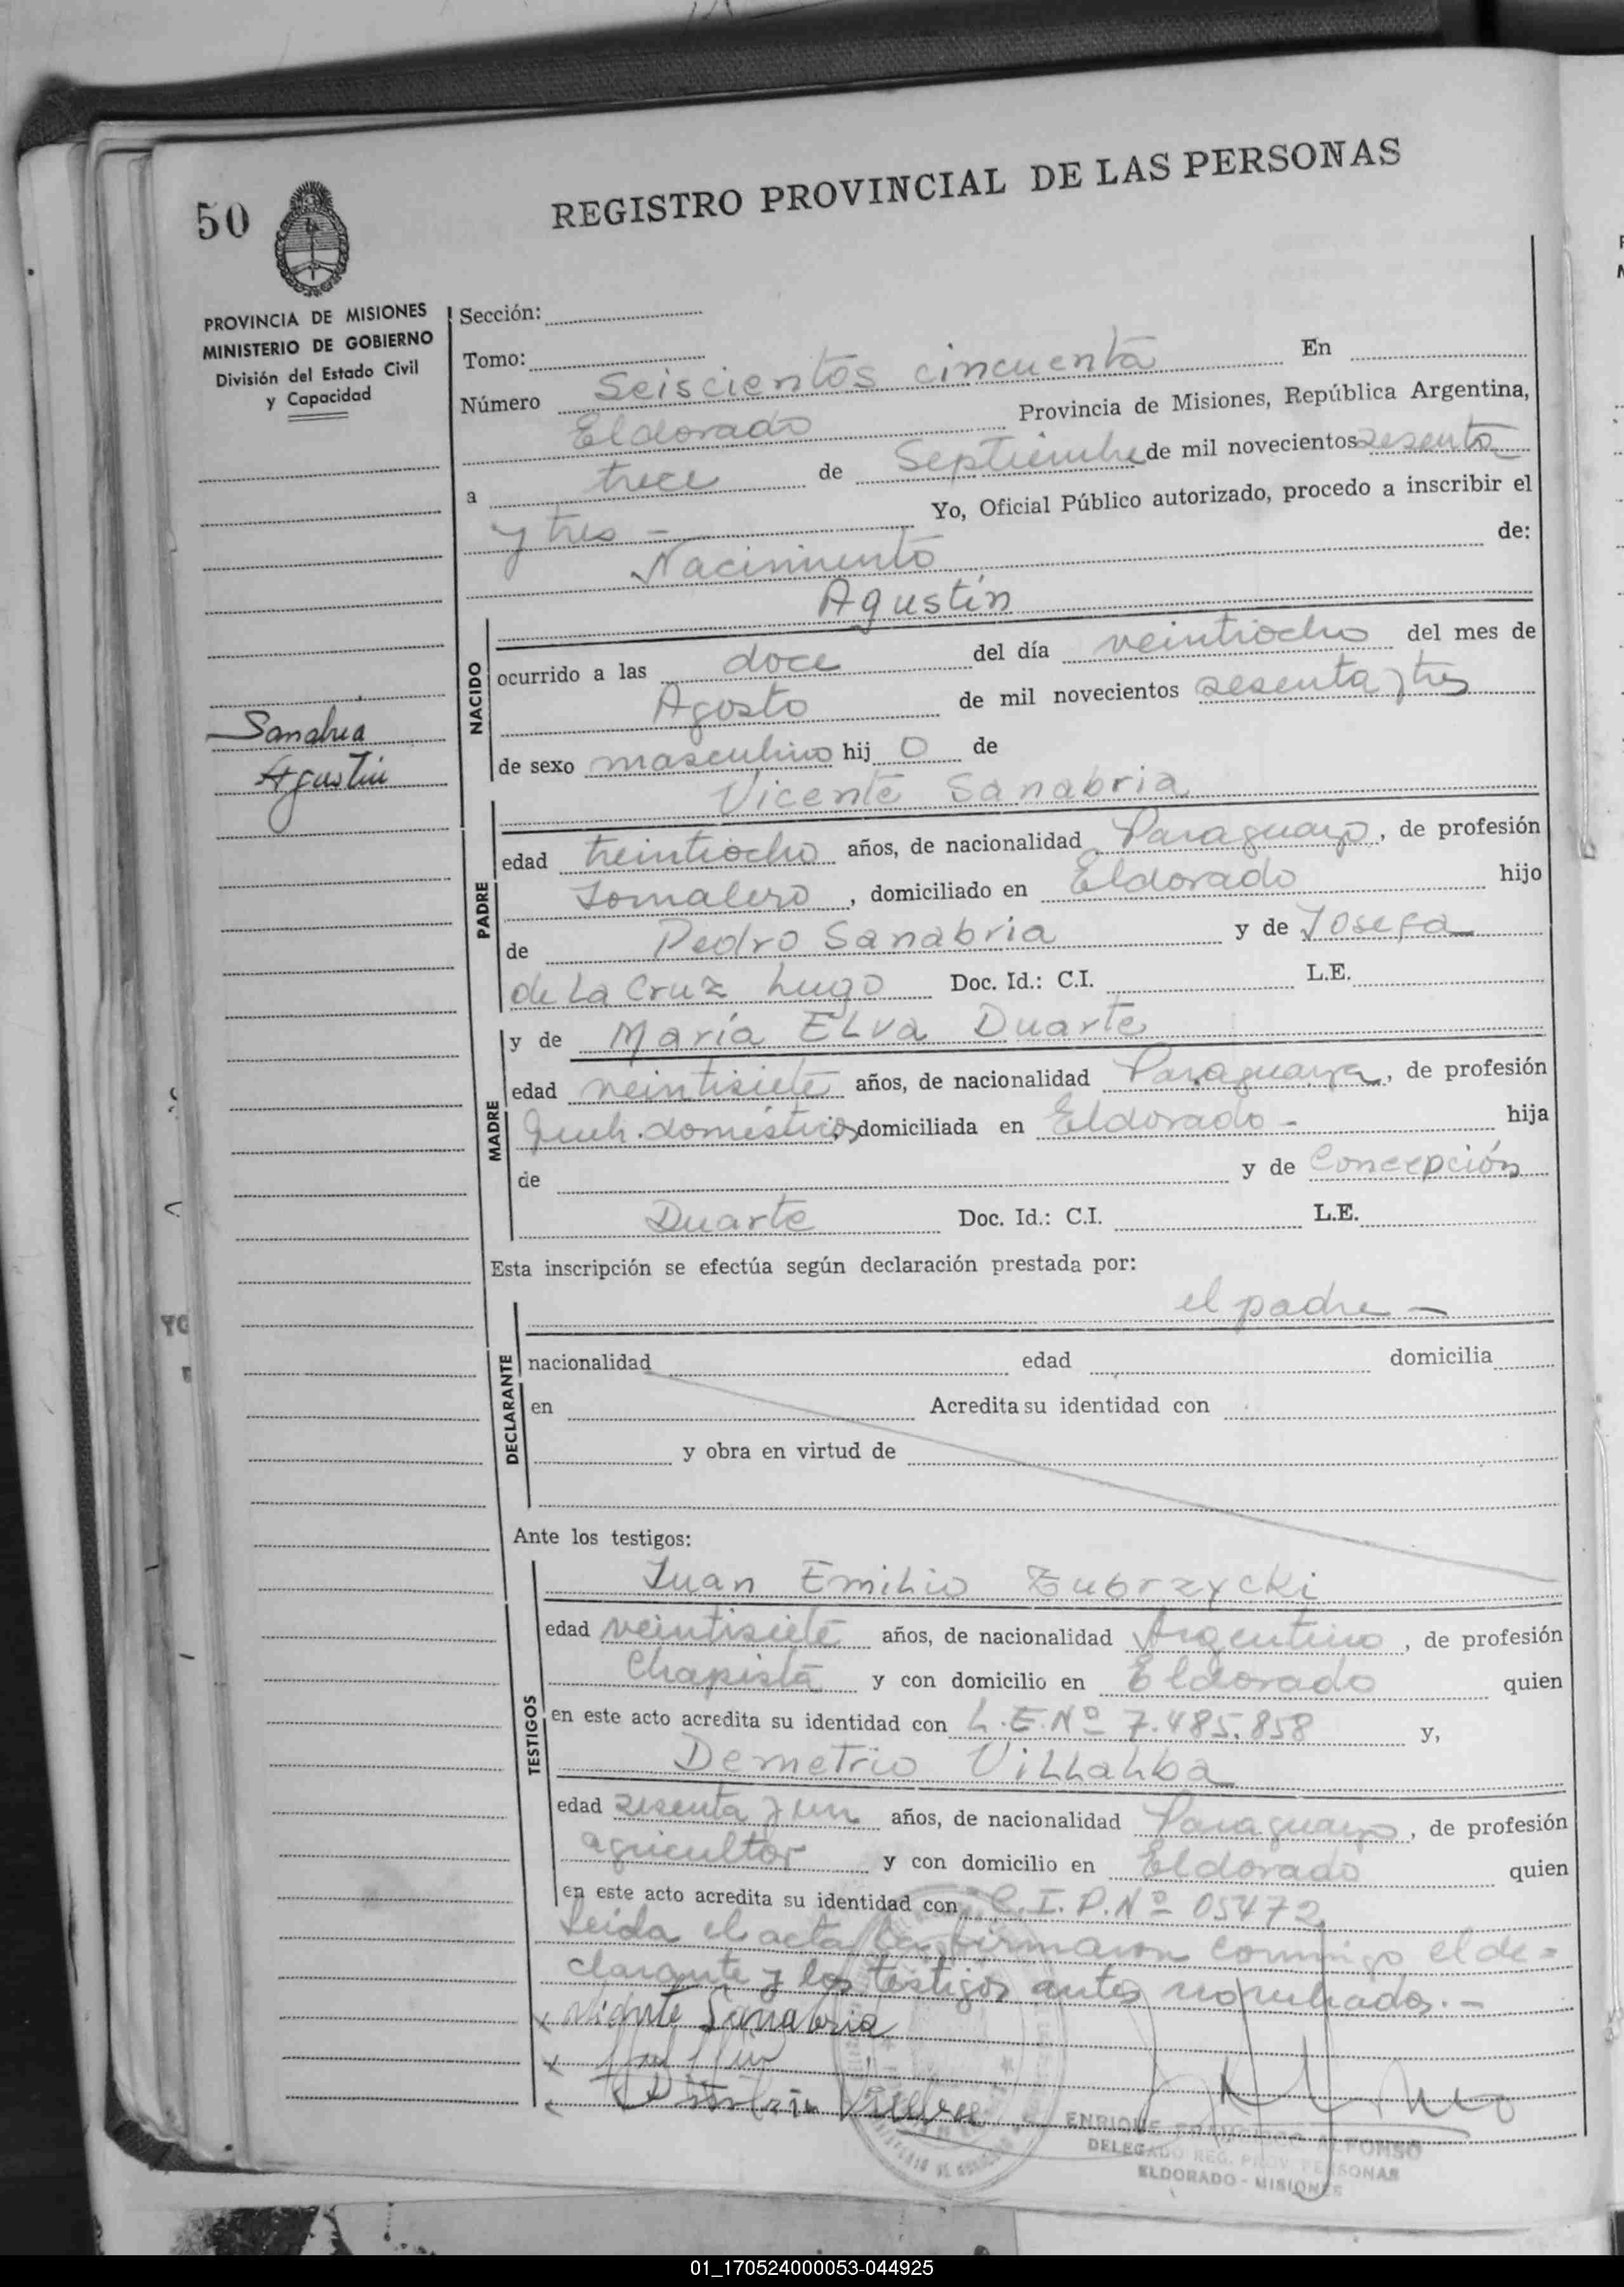 REGISTRO PROVINCIAL DE LAS PERSONAS
50
PROVINCIA DE MISIONES
MINISTERIO DE GOBIERNO
División del Estado Civil
y Capacidad
Sanabria
Agustín
Sección:
Tomo:
Número Seiscientos cincuenta En
Eldorado Provincia de Misiones, República Argentina,
a trece de Septiembre de mil novecientos sesenta
y tres - Yo, Oficial Público autorizado, procedo a inscribir el
Nacimiento de:
Agustín
NACIDO
ocurrido a las doce del día veintiocho del mes de
Agosto de mil novecientos sesenta y tres
de sexo masculino hij o de
Vicente Sanabria
PADRE
edad treintiocho años, de nacionalidad Paraguayo, de profesión
Jornalero, domiciliado en Eldorado hijo
de Pedro Sanabria y de Josefa
de La Cruz Lugo Doc. Id.: C.I. L.E.
y de María ELva Duarte
MADRE
edad veintisiete años, de nacionalidad Paraguaya, de profesión
Queh. domésticos, domiciliada en Eldorado - hija
de y de Concepción
Duarte Doc. Id.: C.I. L.E.
Esta inscripción se efectúa según declaración prestada por:
el padre -
DECLARANTE
nacionalidad edad domicilia
en Acredita su identidad con
y obra en virtud de
Ante los testigos:
Juan Emilio Zubrzycki
TESTIGOS
edad veintisiete años, de nacionalidad Argentino, de profesión
Chapista y con domicilio en Eldorado quien
en este acto acredita su identidad con L.E.Nº 7.485.858 y,
Demetrio Villalba
edad sesenta y un años, de nacionalidad Paraguayo, de profesión
agricultor y con domicilio en Eldorado quien
en este acto acredita su identidad con C.I.P.Nº 05472
Leída el acta la firmaron conmigo el de=
clarante y los testigos antes nombrados.-
Vicente Sanabria
ENRIQUE FRANCISCO ALFONSO
DELEGADO REG. PROV. PERSONAS
ELDORADO - MISIONES
01_170524000053-044925